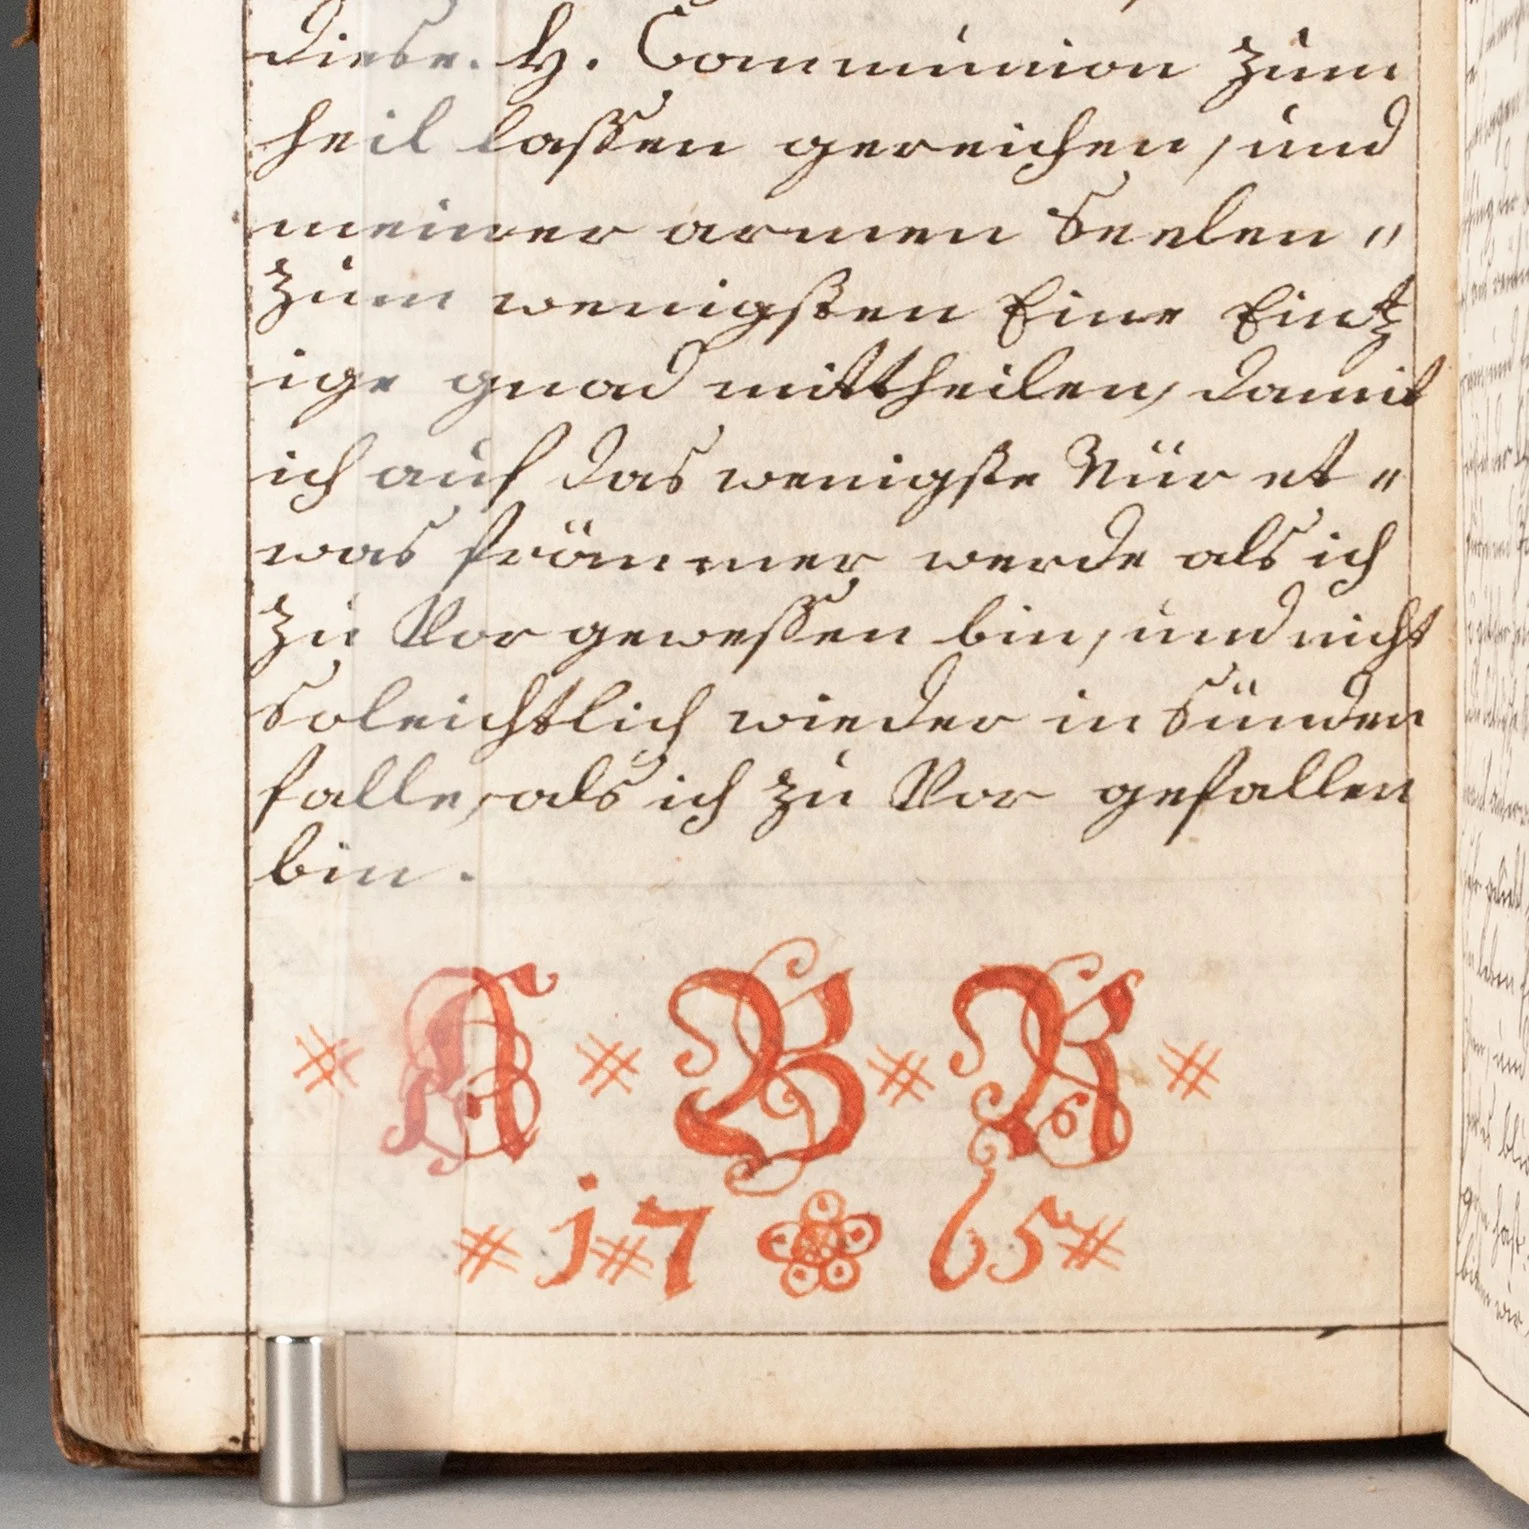 diese. H. Communion zum
heil lassen gereichen, und
meiner armen Seelen "
zum wenigsten Eine Eintz
ige gnad mittheilen, damit
ich auf das wenigste Nür et "
was frömmer werde als ich
zu Vor gewessen bin, und nicht
soleichtlich wieder in Sünden
falle, als ich zu Vor gefallen
bin.
A B R
17 65